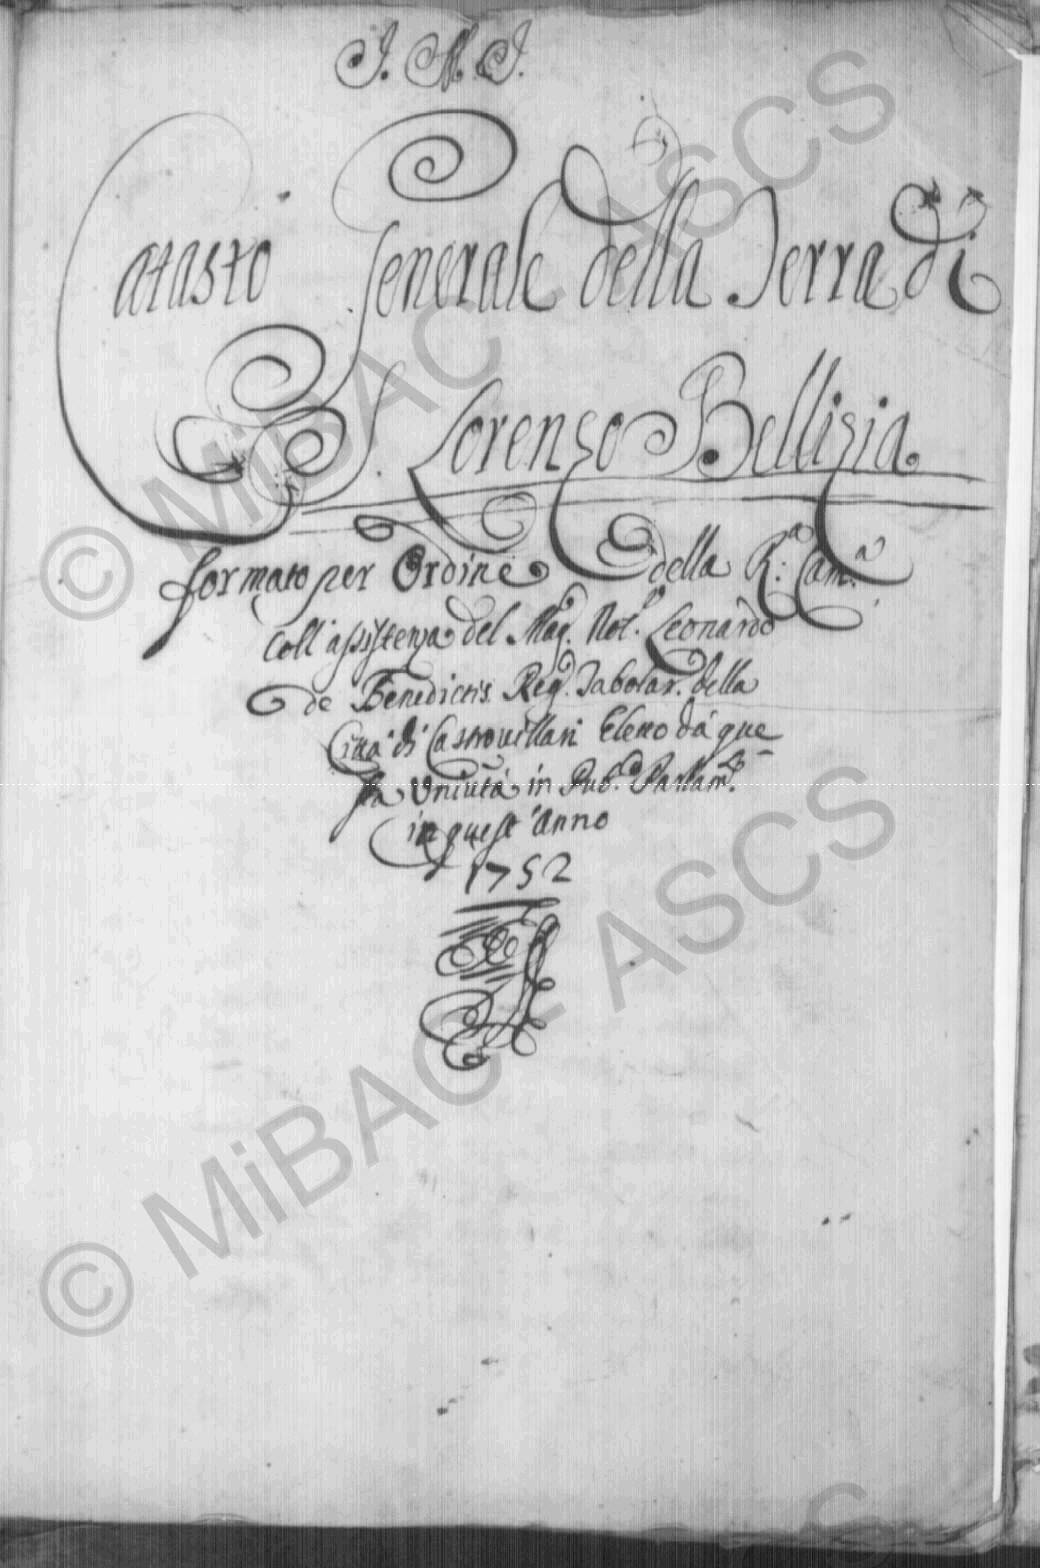 J. M. J.
Catasto Generale della Terra di
S. Lorenzo Bellizia.
formato per Ordine della R.ª Cam.ª
Coll'assistenza del Mag.º Not.º Leonardo
de Benedictis Reg.º Tabolar. della
Città di Castrovillari Eletto da que=
sta Univtà in Pub.º Parlam.to
in quest'anno
1752
© MiBAC - ASCS
© MiBAC - ASCS